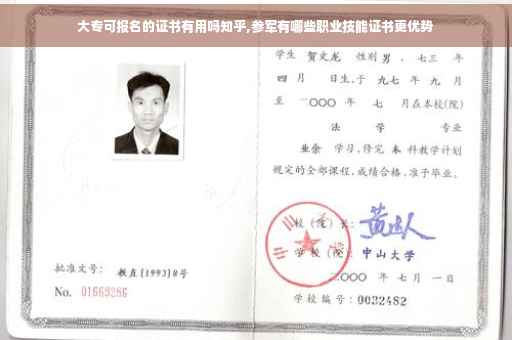 大专可报名的证书有用吗知乎,参军有哪些职业技能证书更优势
学生 贺文龙 性别 男 、七三 年
四 月 日生,于 九七 年 九 月
至 二〇〇〇 年 七 月在本校(院)
法 学 专业
业余 学习,修完 本 科教学计划
规定的全部课程,成绩合格,准予毕业。
校(院)长:
学校(院): 中山大学
二〇〇〇 年 七 月 一 日
批准文号: 教直(1993)8号
No. 01669286
学校编号: 0032482